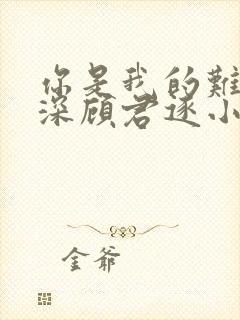 你是我的難
深顧君逐小
金爺